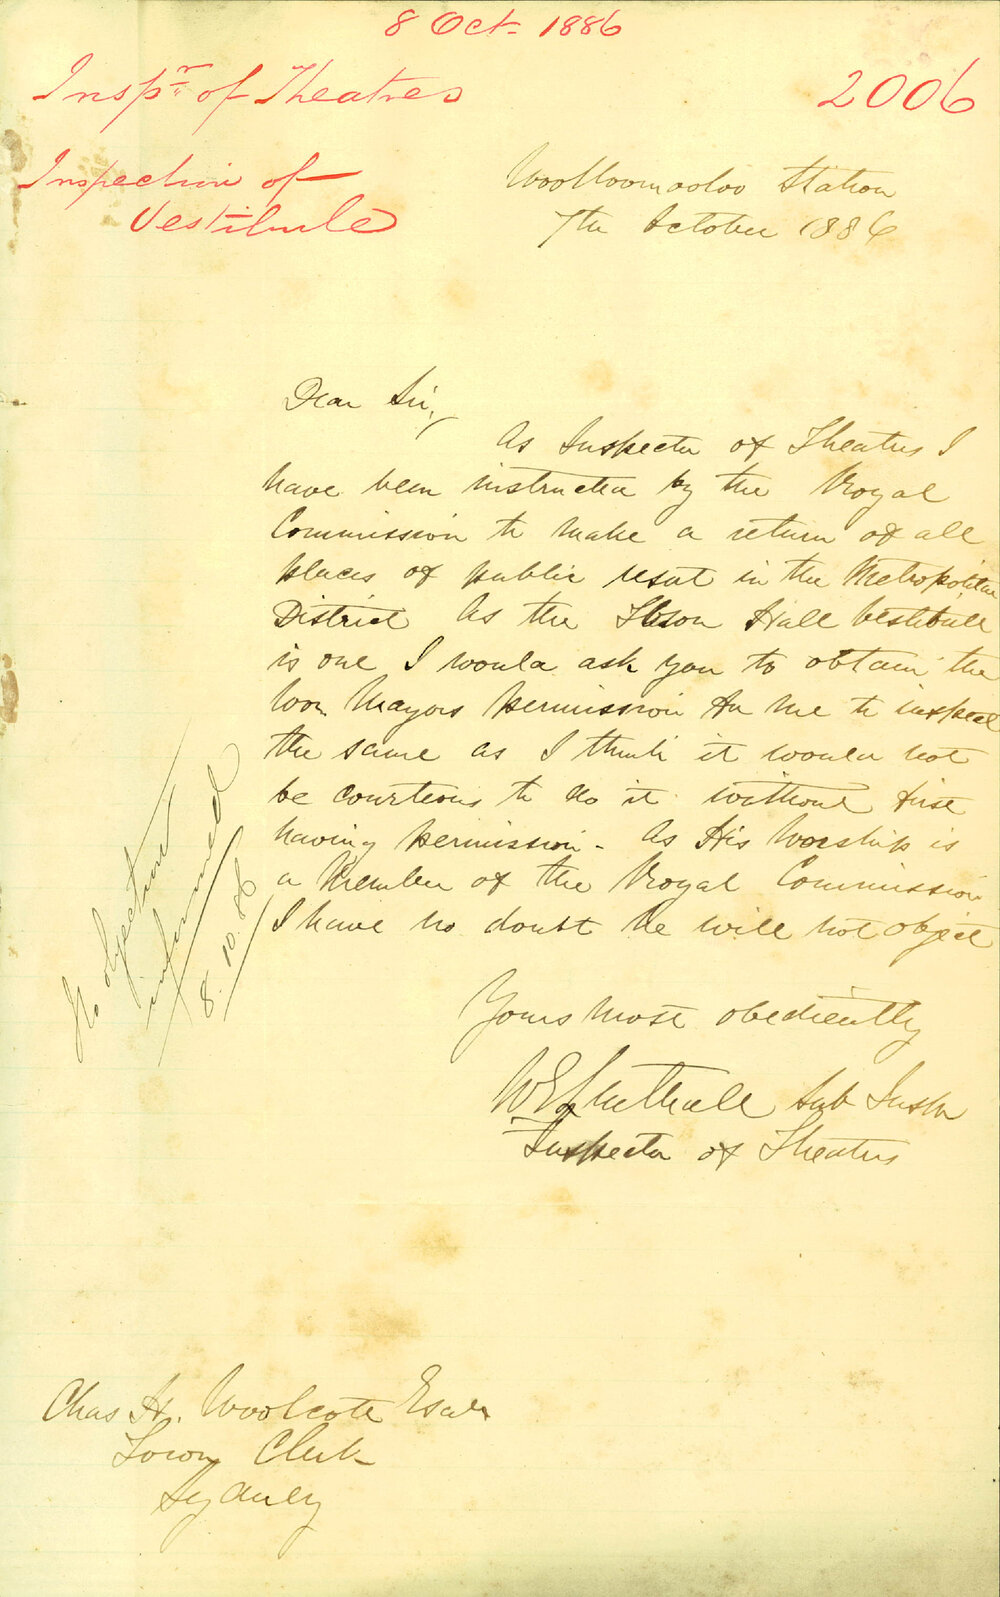 8 Oct. 1886
Inspr. of Theatres
2006
Inspection of
Vestibule
Woolloomooloo Station
7th October 1886
Dear Sir,
As Inspector of Theatres I
have been instructed by the Royal
Commission to make a return of all
places of public resort in the Metropolitan
District As the Town Hall Vestibule
is one I would ask you to obtain the
Mayors permission for me to inspect
the same as I think it would not
be courteous to do it without first
having permission - As His Worship is
a Member of the Royal Commission
I have no doubt he will not object
Yours most obediently
Sub Inspr
Inspector of Theatres
No objection
informed
8.10.86
Chas H. Woolcott Esqr
Town Clerk
Sydney